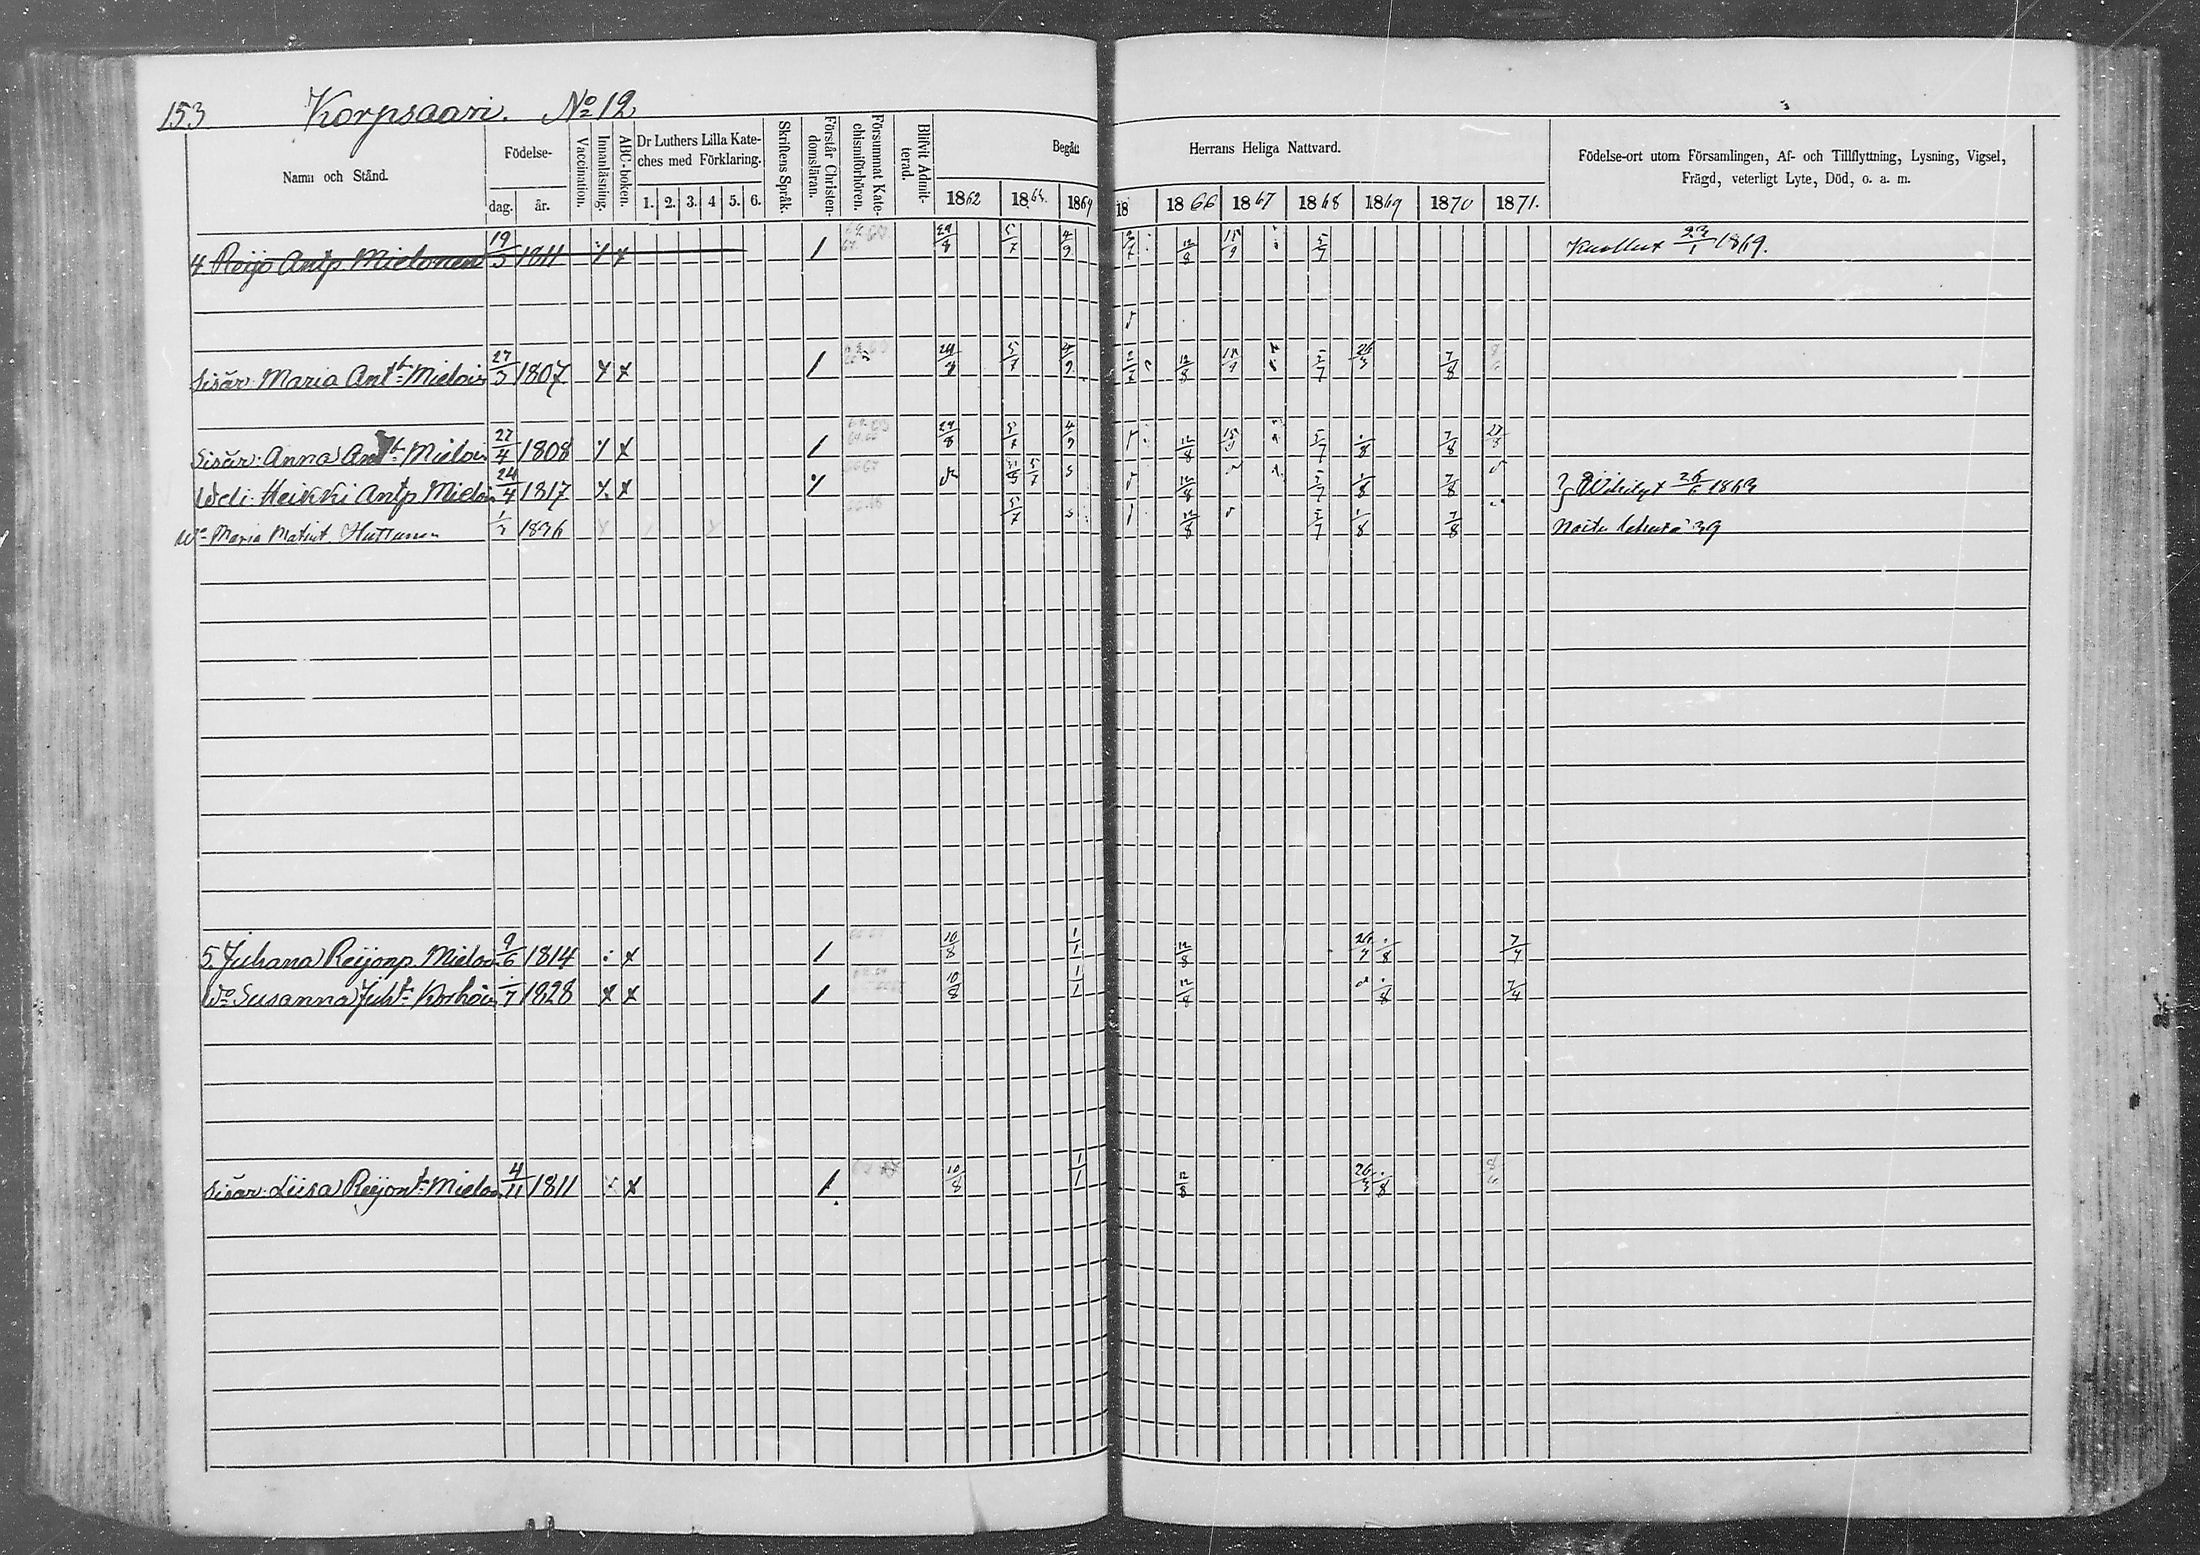 153 Korpsaari. No 12
Namn och Stånd.
Födelse-
dag. år.
Vaccination.
Innanläsning.
ABC-boken.
Dr Luthers Lilla Kate-
ches med Förklaring.
1. 2. 3. 4 5. 6.
Skriftens Språk.
Förstår Christen-
domsläran.
Försummat Kate-
chismiförhören.
Blifvit Admit-
terad.
Begått Herrans Heliga Nattvard.
1862 1864 18 1866 1867 1868 1869 1870 1871.
Födelse-ort utom Församlingen, Af- och Tillflyttning, Lysning, Vigsel,
Frägd, veterligt Lyte, Död, o. a. m.
4 Reijo Antp. Mielonen 19/3 1811 29/8 5/7 4/9 12/8 15/9 5/7 Kuollut 23/1 1869.
Sisär. Maria Antt. Mieloin 27/3 1807 29/8 5/7 4/9 2/7 12/8 15/9 5/7 7/8
Sisär. Anna Antt. Mieloin 27/4 1808 29/8 5/7 4/9 12/8 15/9 5/7 7/8
Weli. Heikki Antp Mieloin 24/4 1817 5/7 12/8 5/7 7/8 Wihityt 1863
Wo Maria Matint Huttunen 1836 5/7 12/8 5/7 7/8
5. Juhana Reijonp Mieloi 9/6 1814 10/8 1/1 12/8 7/4
Wo Susanna Juht. Korhoin 1828 10/8 1/1 12/8 7/4
Sisar. Liisa Reijont. Mieloi 4/11 1811 10/8 1/1 12/8 26/3